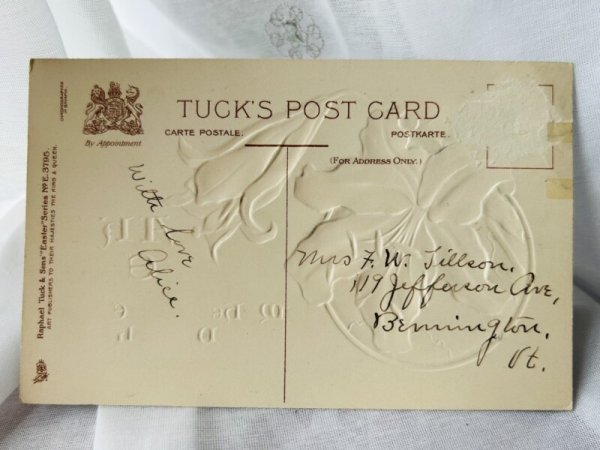 TUCK'S POST CARD
CARTE POSTALE.
POSTKARTE.
By Appointment
(FOR ADDRESS ONLY.)
Raphael Tuck & Sons' "Easter" Series No. E. 3795.
ART PUBLISHERS TO THEIR MAJESTIES THE KING & QUEEN.
With love
Alice.
Mrs F. W. Tillson,
119 Jefferson Ave,
Bennington,
Vt.